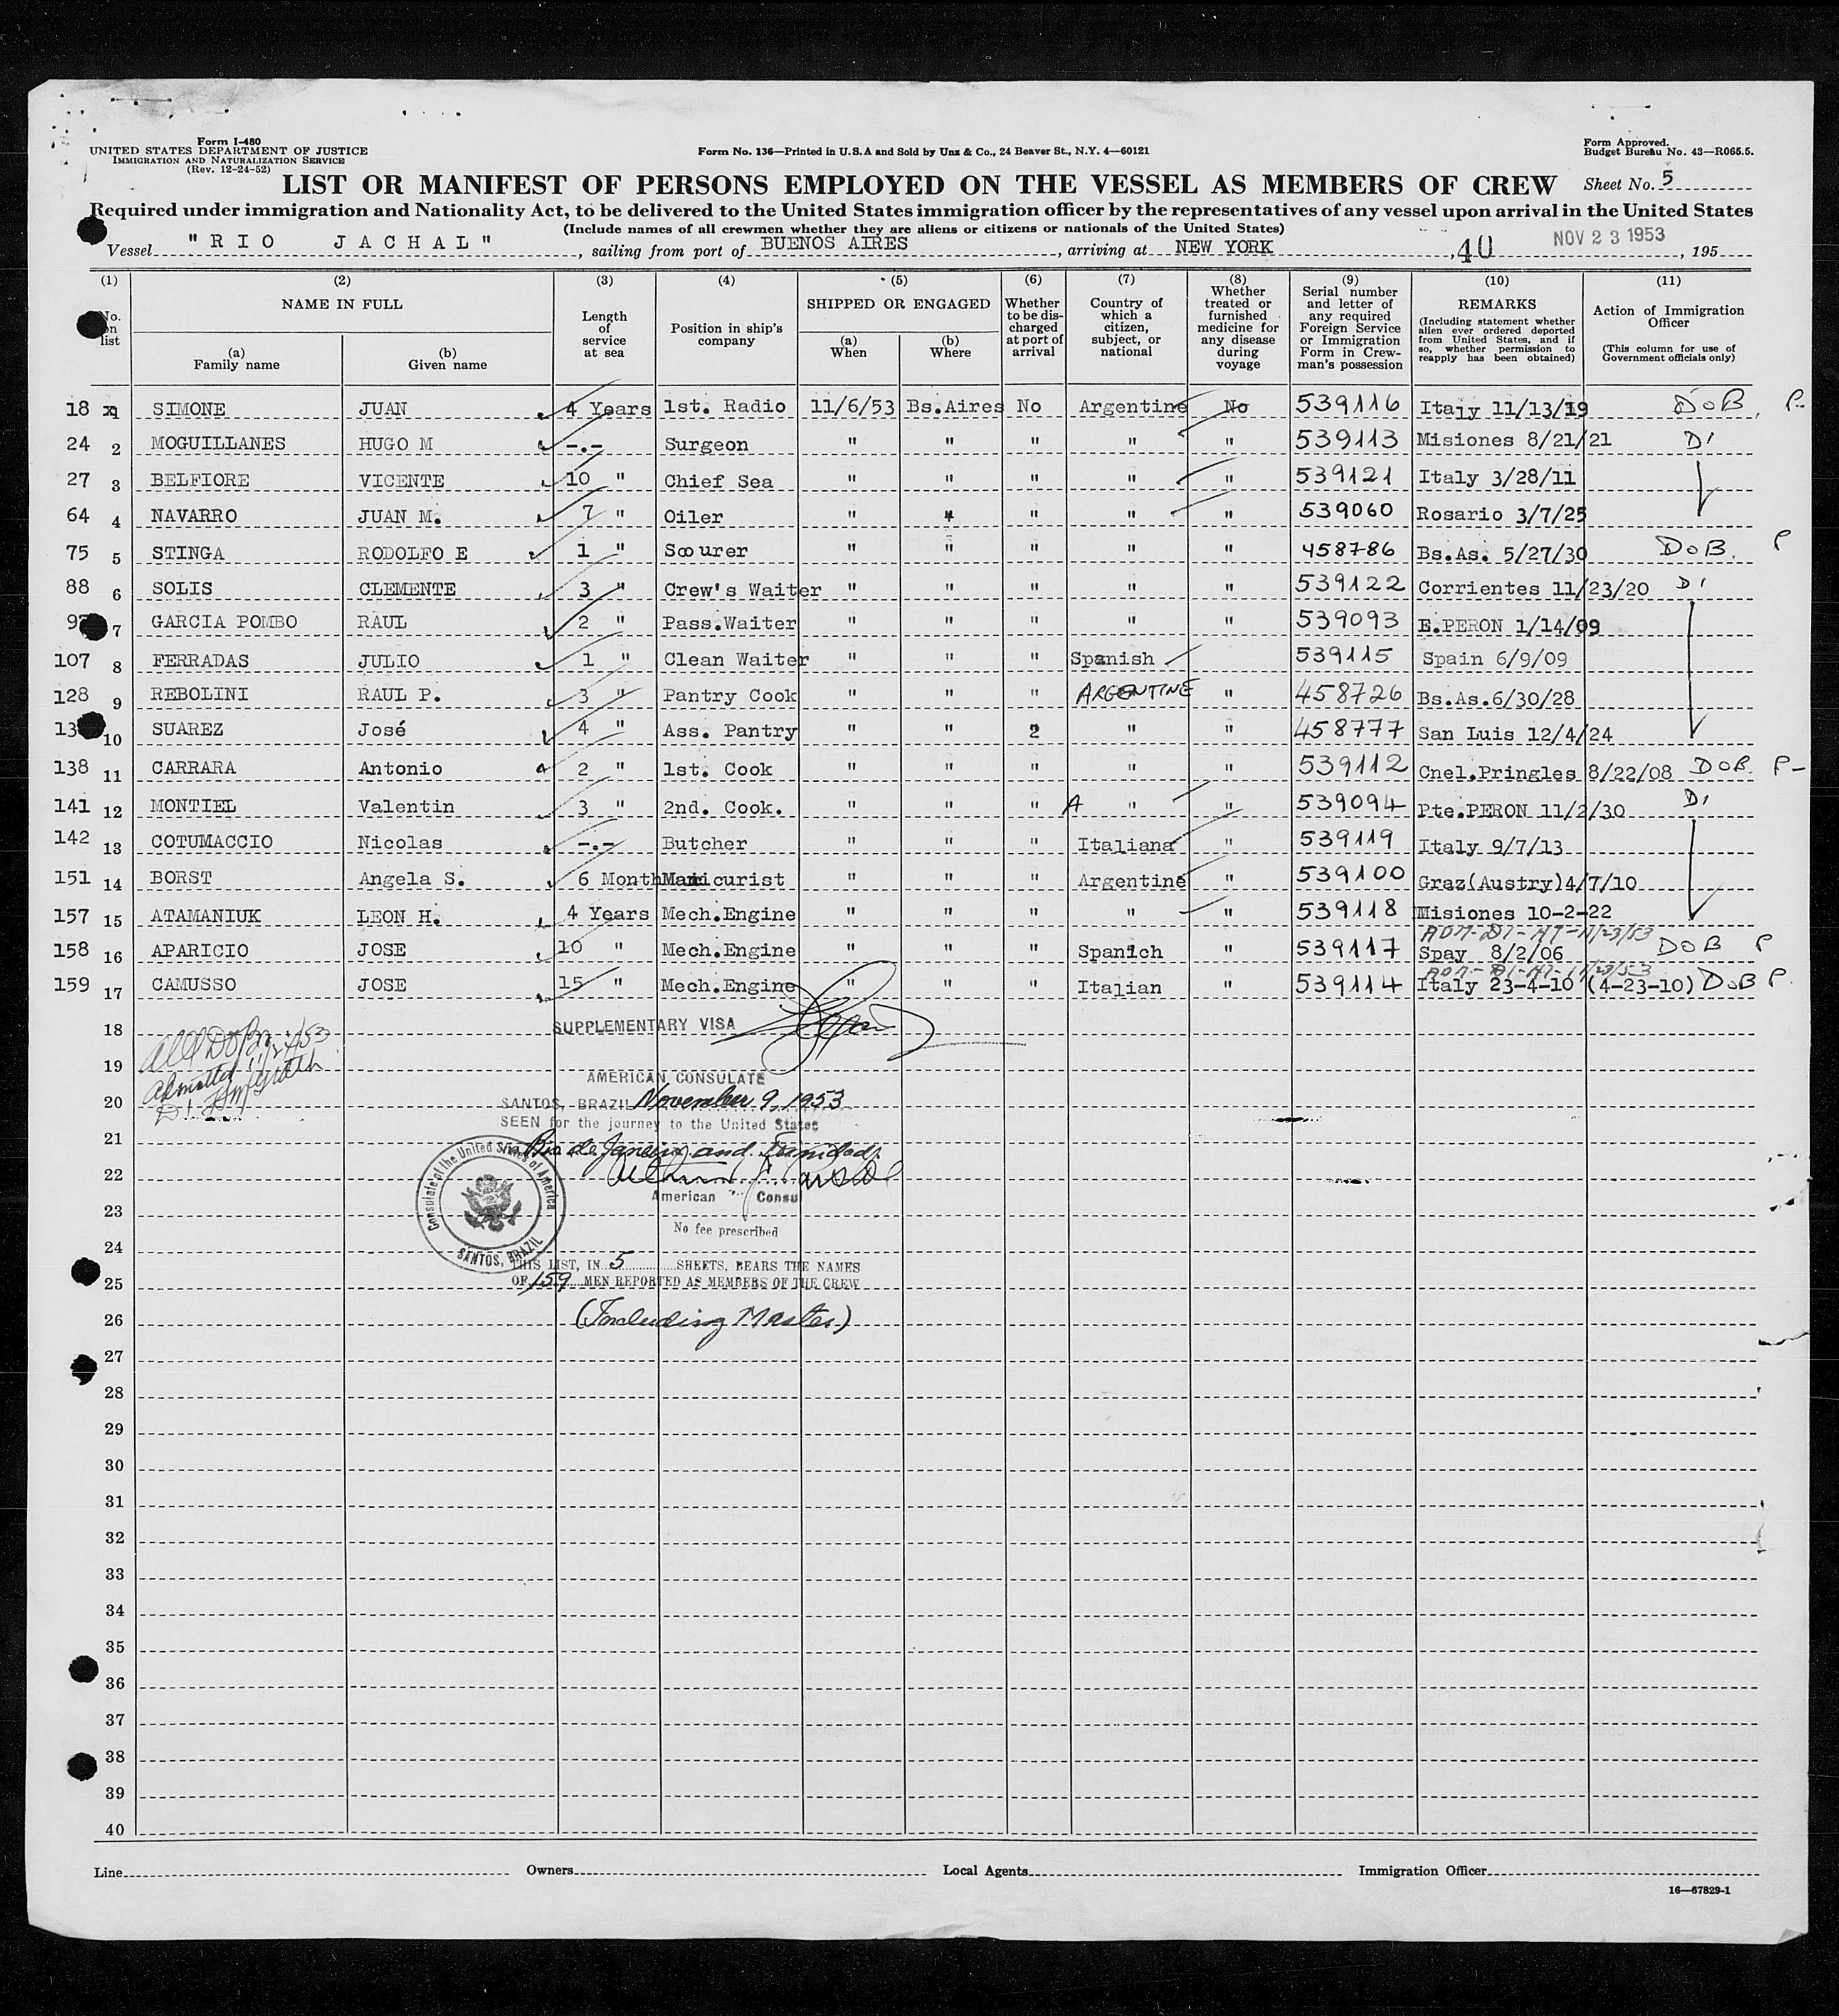 Form I-480
UNITED STATES DEPARTMENT OF JUSTICE
IMMIGRATION AND NATURALIZATION SERVICE
(Rev. 12-24-52)
Form No. 136—Printed in U.S.A and Sold by Unz & Co., 24 Beaver St., N.Y. 4—60121
Form Approved.
Budget Bureau No. 43—R065.5.
LIST OR MANIFEST OF PERSONS EMPLOYED ON THE VESSEL AS MEMBERS OF CREW Sheet No. 5
Required under immigration and Nationality Act, to be delivered to the United States immigration officer by the representatives of any vessel upon arrival in the United States
(Include names of all crewmen whether they are aliens or citizens or nationals of the United States)
Vessel "RIO JACHAL", sailing from port of BUENOS AIRES, arriving at NEW YORK, 40 NOV 23 1953, 195
(1) (2) (3) (4) (5) (6) (7) (8) (9) (10) (11)
No. on list
NAME IN FULL
(a) Family name
(b) Given name
Length of service at sea
Position in ship's company
SHIPPED OR ENGAGED
(a) When
(b) Where
Whether to be discharged at port of arrival
Country of which a citizen, subject, or national
Whether treated or furnished medicine for any disease during voyage
Serial number and letter of any required Foreign Service or Immigration Form in Crewman's possession
REMARKS
(Including statement whether alien ever ordered deported from United States, and if so, whether permission to reapply has been obtained)
Action of Immigration Officer
(This column for use of Government officials only)
18 1 SIMONE JUAN 4 Years 1st. Radio 11/6/53 Bs.Aires No Argentine No 539116 Italy 11/13/19 DOB. P-
24 2 MOGUILLANES HUGO M -.- Surgeon " " " " " 539113 Misiones 8/21/21 D1
27 3 BELFIORE VICENTE 10 " Chief Sea " " " " " 539121 Italy 3/28/11
64 4 NAVARRO JUAN M. 7 " Oiler " " " " " 539060 Rosario 3/7/25
75 5 STINGA RODOLFO E 1 " Scourer " " " " " 458786 Bs.As. 5/27/30 DOB. P
88 6 SOLIS CLEMENTE 3 " Crew's Waiter " " " " " 539122 Corrientes 11/23/20 D1
7 GARCIA POMBO RAUL 2 " Pass.Waiter " " " " " 539093 E.PERON 1/14/09
107 8 FERRADAS JULIO 1 " Clean Waiter " " " Spanish 539115 Spain 6/9/09
128 9 REBOLINI RAUL P. 3 " Pantry Cook " " " ARGENTINE " 458726 Bs.As.6/30/28
10 SUAREZ José 4 " Ass. Pantry " " 2 " " 458777 San Luis 12/4/24
138 11 CARRARA Antonio 2 " 1st. Cook " " " " " 539112 Cnel.Pringles 8/22/08 DOB. P-
141 12 MONTIEL Valentin 3 " 2nd. Cook. " " " A " " 539094 Pte.PERON 11/2/30 D1
142 13 COTUMACCIO Nicolas -.- Butcher " " " Italiana " 539119 Italy 9/7/13
151 14 BORST Angela S. 6 Month Manicurist " " " Argentine " 539100 Graz(Austry)4/7/10
157 15 ATAMANIUK LEON H. 4 Years Mech.Engine " " " " " 539118 Misiones 10-2-22
158 16 APARICIO JOSE 10 " Mech.Engine " " " Spanich " 539117 Spay 8/2/06 DOB P
159 17 CAMUSSO JOSE 15 " Mech.Engine " " " Italian " 539114 Italy 23-4-10 (4-23-10) DOB P.
18
SUPPLEMENTARY VISA
19
AMERICAN CONSULATE
20
SANTOS, BRAZIL November 9, 1953
SEEN for the journey to the United States
21
via Rio de Janeiro and Trinidad.
22
American Consul
23
No fee prescribed
Consulate of the United States of America
SANTOS, BRAZIL
24
THIS LIST, IN 5 SHEETS, BEARS THE NAMES
25
OF 159 MEN REPORTED AS MEMBERS OF THE CREW
26
(Including Master)
27
28
29
30
31
32
33
34
35
36
37
38
39
40
Line Owners Local Agents Immigration Officer
16—67829-1